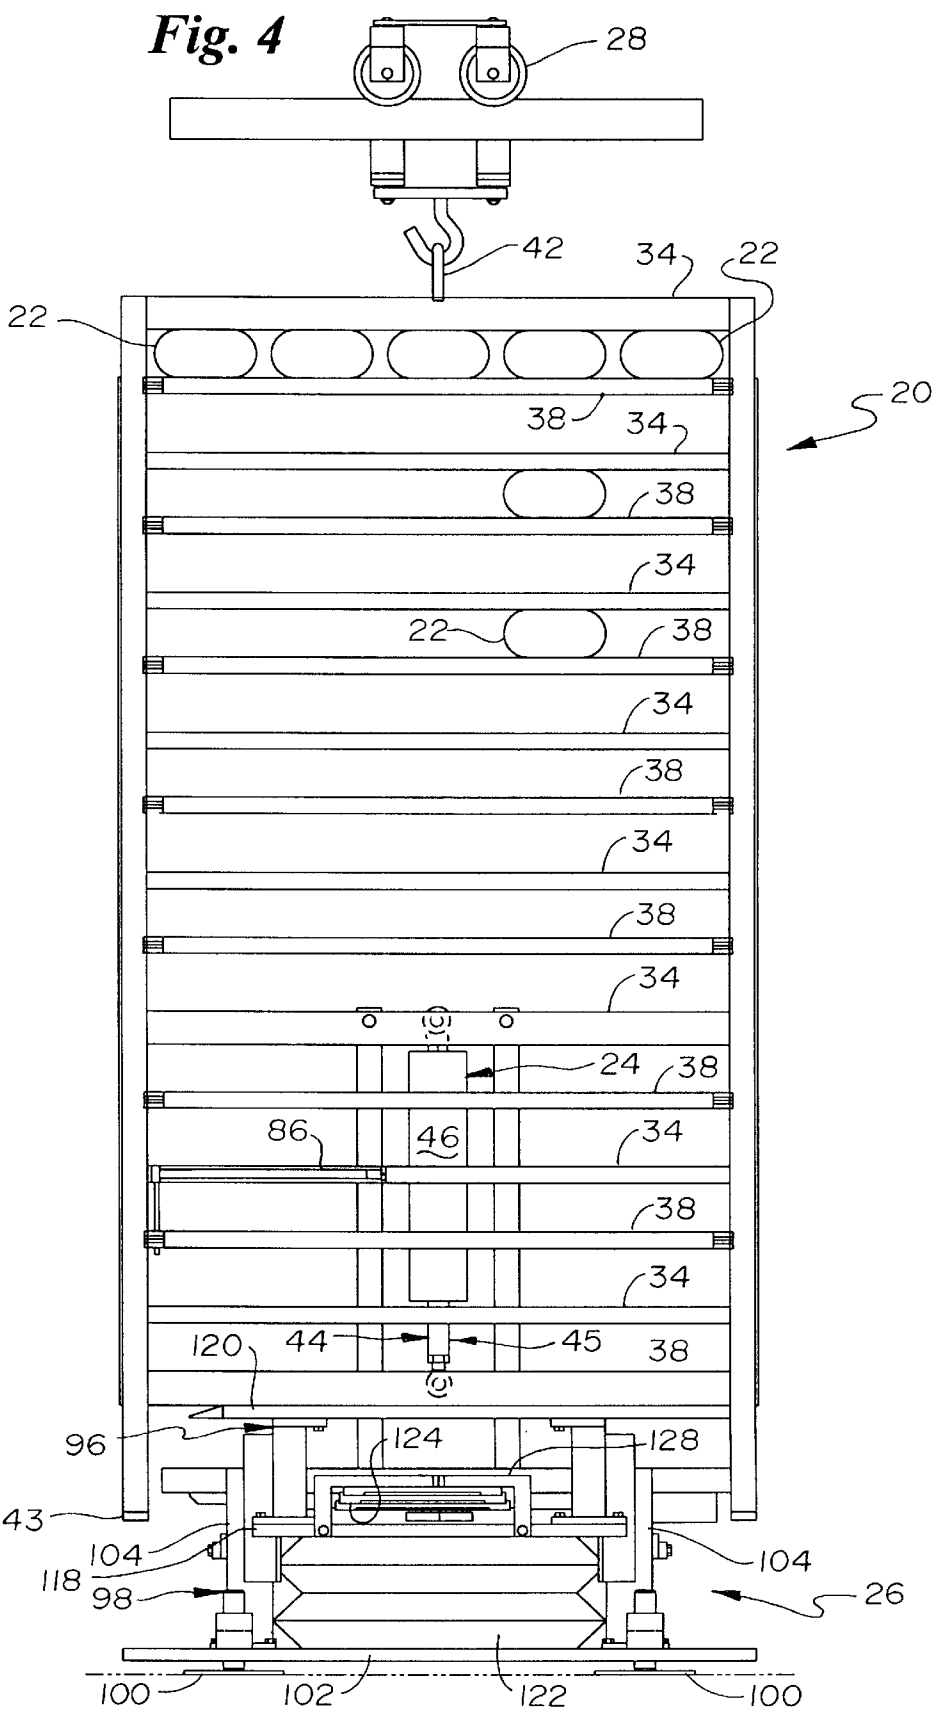 Fig. 4
28
42
34 22
22
20
38 34
38
34
22 38
34
38
34
38
34
24 38
46
86 34
38
34
44 45 38
120
96 124 128
43
104 104
118
98 26
100 102 122 100